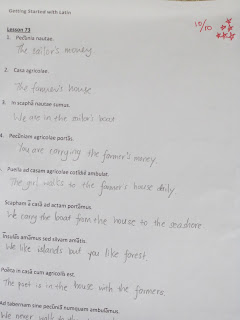 Getting Started with Latin
10/10
Lesson 73
1. Pecūnia nautae.
The sailor's money
2. Casa agricolae.
The farmer's house
3. In scaphā nautae sumus.
We are in the sailor's boat
4. Pecūniam agricolae portās.
You are carrying the farmer's money.
Puella ad casam agricolae cotīdiē ambulat.
The girl walks to the farmer's house daily
Scapham ā casā ad actam portāmus.
We carry the boat from the house to the seashore
Īnsulās amāmus sed silvam amātis.
We like islands but you like forest.
Poēta in casā cum agricolīs est.
The poet is in the house with the farmers.
Ad tabernam sine pecūniā numquam ambulāmus.
We never walk to the